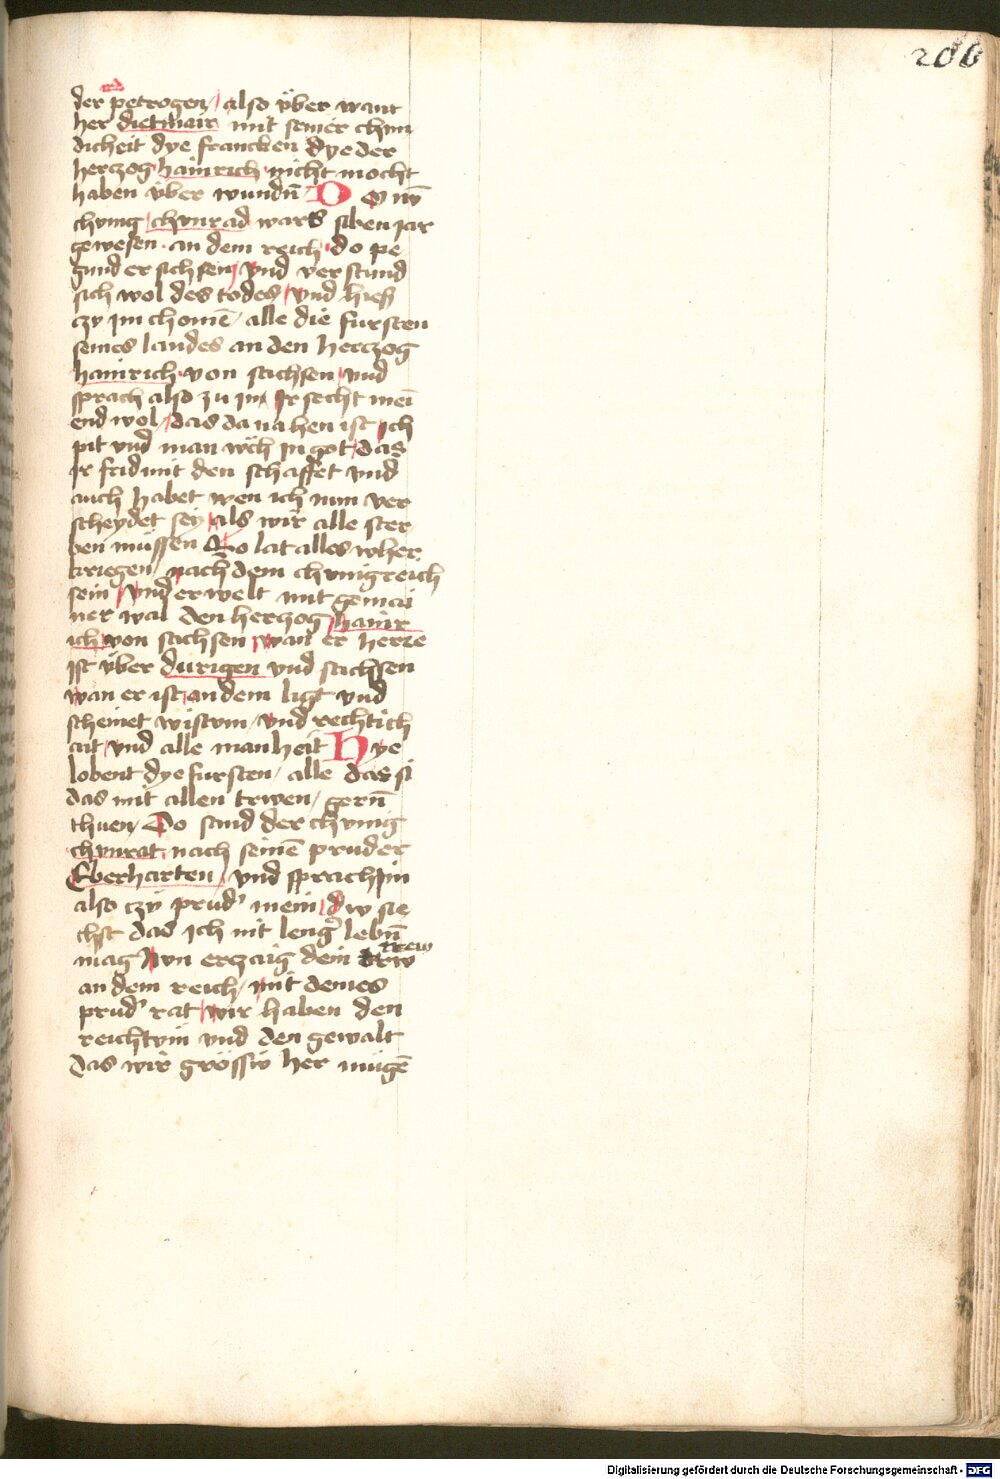 200
der petrogen / also über want
her dietmair mit seiner chün
dicheit dye francken dye der
herczog hainrich nicht mocht
haben über wundn̄ Do nv̄
chvnig chvnrad wart siben jar
gewesen an dem reich do pe
gund er sichsen / vnd verstund
sich wol des todes / vnd hieß
czy im chomē alle die fursten
seines landes an den herczog
hainrich von sachsen vnd
sprach also zu im Ir secht mei
end wol / das da nahen ist ich
pit vnd man in got / das
ir frid mit den schaffet vnd
auch habet wen ich nun ver
scheydet sey / als wir alle ster
ben müssen So lat alles
kriegen / nach dem chvnigreich
sein / vnd erwelt mit gemai
ner wal den herczog hainr
ich von sachsen wan er herre
ist über durigen vnd sachsen
wan er ist an dem ligt vnd
scheinet wistvm / vnd rechtich
ait vnd alle manheit Hye
lobent dye fursten / alle das si
das mit allen trwen / gern̄
thuen / Do sand der chvnig
chvnrat nach seinē pruder
Eberharten / vnd sprach im
also czy prud' mein / dw sie
chst das ich nit leng' lebn̄
trew
mag Nvn erczaig dein
an dem reich / mit deines
prud' rat / wir haben den
reichtvm vnd den gewalt
das wir grössiv her mügē
Digitalisierung gefördert durch die Deutsche Forschungsgemeinschaft - DFG